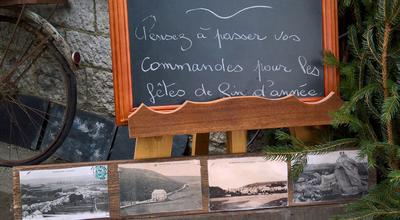 Pensez à passer vos
Commandes pour les
fêtes de fin d'année